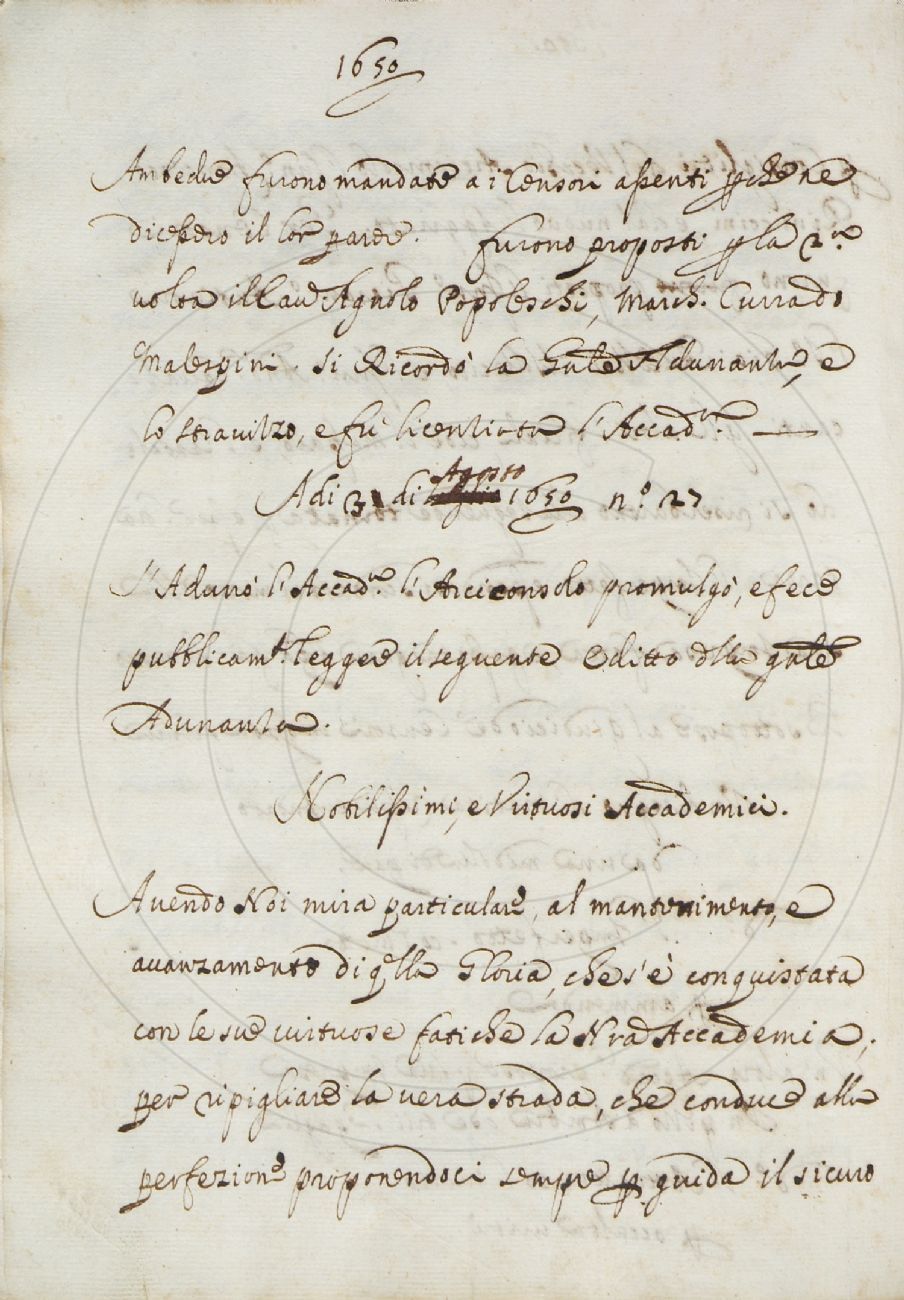 1650
Ambedue furono mandate a i Censori assenti p che ne
dicessero il lor parere. furono proposti p la 2.a
volta il Cav.e Agnolo Popoleschi, March. Currado
Malespini. Si Ricordò la Gnle Adunanza, e
lo stravizzo, e fù licenziata l'Accad.a. —
Adi 31 di Agosto 1650 n.o 27
S'Adunò l'Accad.a l'Arciconsolo promulgò, e fece
pubblicam.te leggere il seguente Editto dlla gnle
Adunanza.
Nobilissimi, e Virtuosi Accademici.
Avendo Noi mira particulare, al mantenimento, e
avanzamento di qlla Gloria, che s'è conquistata
con le sue virtuose fatiche la Nra Accademia,
per ripigliare la vera strada, che conduce alla
perfezione proponendoci sempre p guida il sicuro